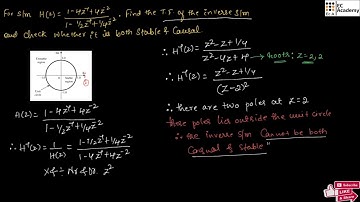 For S/m H(z) = 1-4z⁻¹+4z⁻² / 1-½z⁻¹+¼z⁻² . Find the T.F of the inverse s/m
and check whether it is both Stable & Causal
EC Academy
H(z) = 1-4z⁻¹+4z⁻² / 1-½z⁻¹+¼z⁻²
∴ H⁻¹(z) = 1/H(z) = 1-½z⁻¹+¼z⁻² / 1-4z⁻¹+4z⁻²
x & ÷ Nr & Dr z²
∴ H⁻¹(z) = z²-z+1/4 / z²-4z+4 → roots: z=2,2
∴ H⁻¹(z) = z²-z+1/4 / (z-2)²
∴ there are two poles at z=2
these poles lies outside the unit circle
∴ the inverse s/m Cannot be both
Causal & Stable"